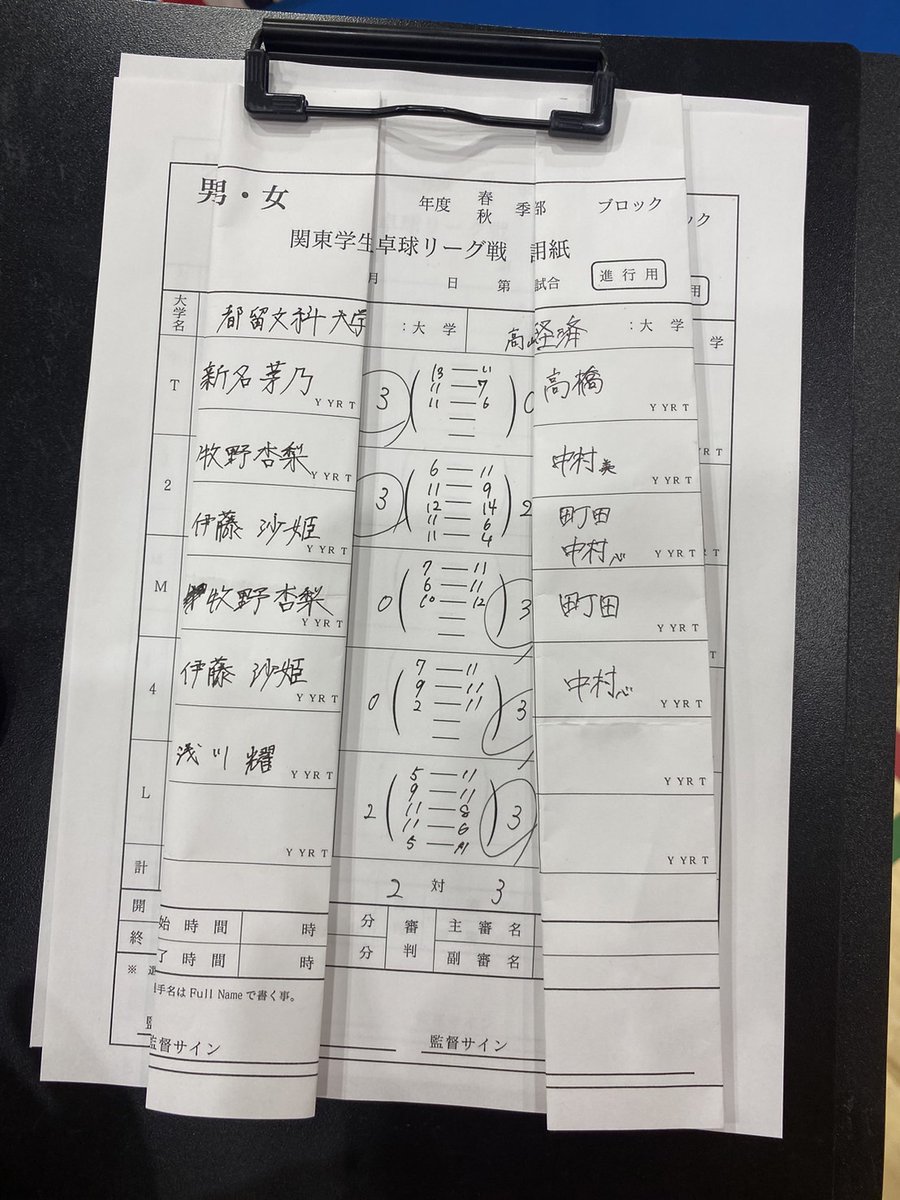 男・女
年度 春 秋 季 部 ブロック
ック
関東学生卓球リーグ戦 用紙
月 日 第 試合 進行用
用
大学名 都留文科大学 :大学 高 経済 :大学
学
T 新名茅乃 Y YR T 3 ( 13 — 11 ) 0 高橋 Y YR T
11 — 7
11 — 6
2 牧野杏梨 Y YR T 3 ( 6 — 11 ) 2 中村美 Y YR T
11 — 9
12 — 14
11 — 6
11 — 4
伊藤 沙姫 Y YR T 町田
中村心 Y YR T
M 牧野杏梨 Y YR T 0 ( 7 — 11 ) 3 町田 Y YR T
6 — 11
10 — 12
4 伊藤 沙姫 Y YR T 0 ( 7 — 11 ) 3 中村心 Y YR T
9 — 11
2 — 11
L 浅川 耀 Y YR T 2 ( 5 — 11 ) 3 Y YR T
9 — 11
11 — 8
11 — 6
5 — 11
Y YR T Y YR T
計 2 対 3
開 始時間 時 分 審判 主審名
終 了時間 時 分 副審名
※ 手名はFull Nameで書く事。
監督サイン 監督サイン